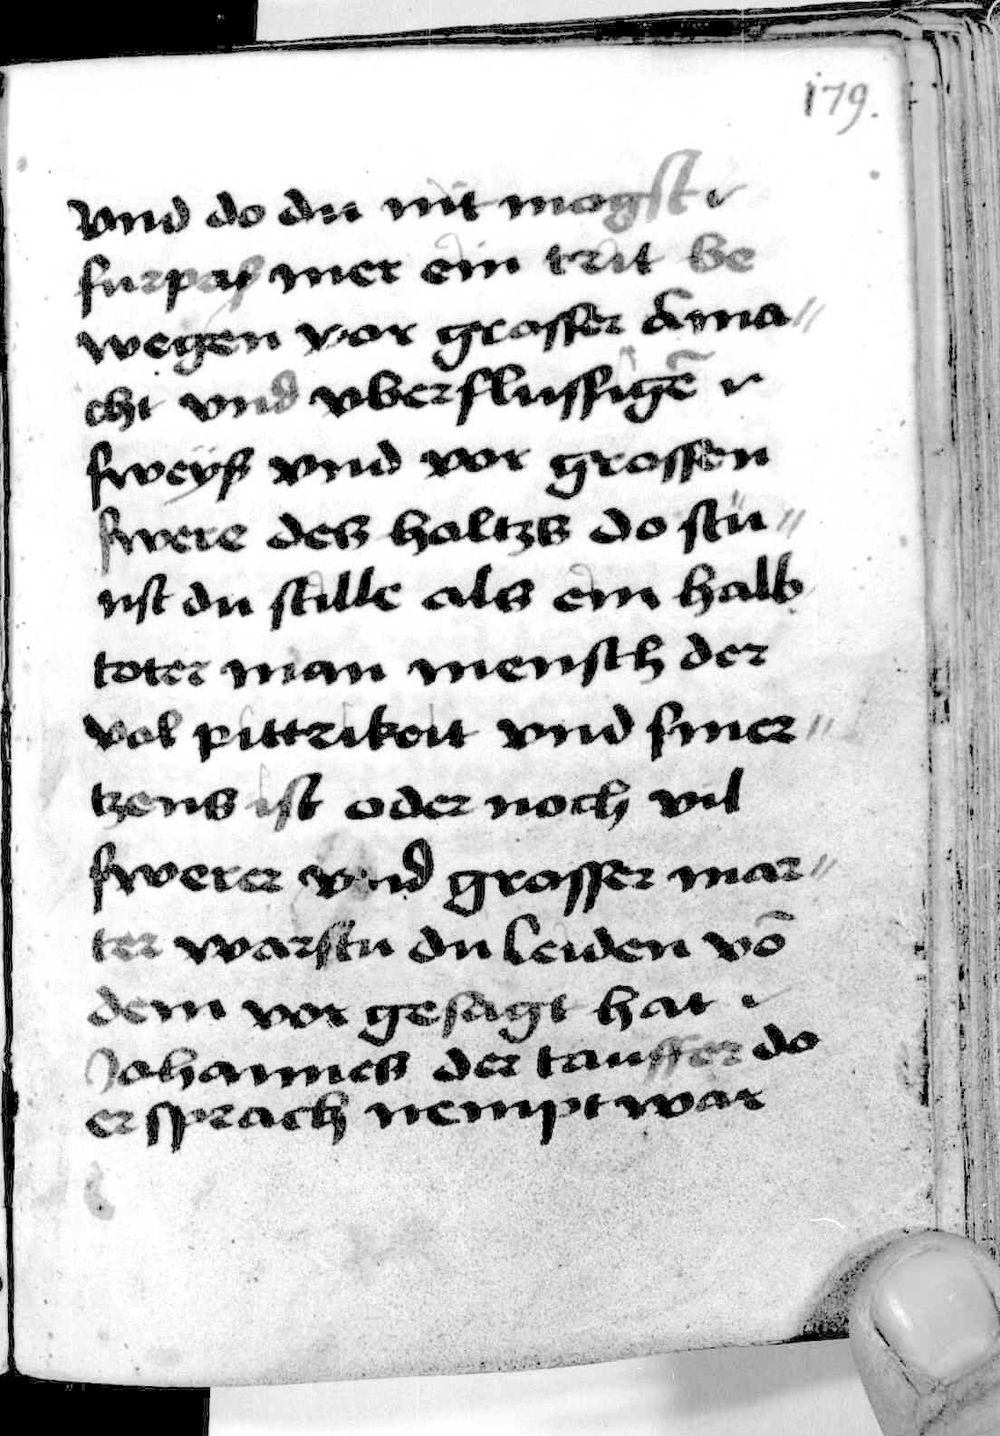 179.
vnd do du nit mogst
furpas mer ein trit be
wegen vor grosser ama„
cht vnd vberflussigē
sweys vnd vor grossen
swere des holtzs do stu„
nst du stille als ein halb
toter man mensch der
vol pittrikeit vnd smer„
tzens ist oder noch vil
swerer vnd grosser mar„
ter warstu du leiden vō
dem vor gesagt hat
Johannes der tauffer do
er sprach nempt war